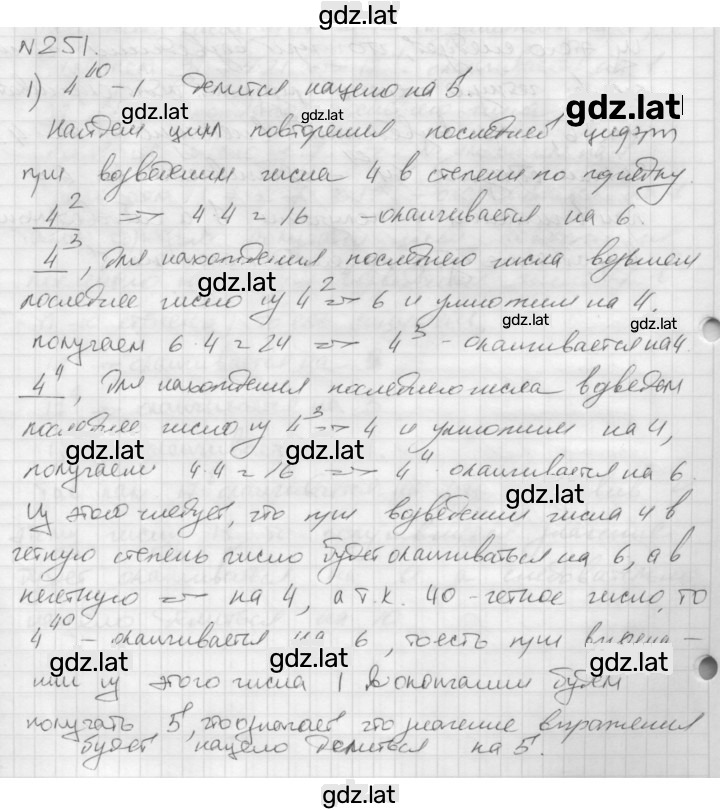 gdz.lat
№251.
1) 4^40 - 1 делится нацело на 5
gdz.lat gdz.lat gdz.lat
Найдем цикл повторения последней цифры
при возведении числа 4 в степени по порядку.
4^2 => 4·4=16 - оканчивается на 6.
4^3, для нахождения последнего числа возьмем
gdz.lat
последнее число из 4^2 => 6 и умножим на 4,
gdz.lat gdz.lat
получаем 6·4=24 => 4^3 - оканчивается на 4.
4^4, для нахождения последнего числа возведем
последнее число из 4^3 => 4 и умножим на 4,
gdz.lat gdz.lat
получаем 4·4=16 => 4^4 - оканчивается на 6.
gdz.lat
Из этого следует, что при возведении числа 4 в
четную степень число будет оканчиваться на 6, а в
нечетную => на 4, а т.к. 40 - четное число, то
4^40 - оканчивается на 6, то есть при вычита-
gdz.lat gdz.lat gdz.lat
нии из этого числа 1 в окончании будем
получать 5, что означает что значение выражения
будет нацело делиться на 5.
gdz.lat